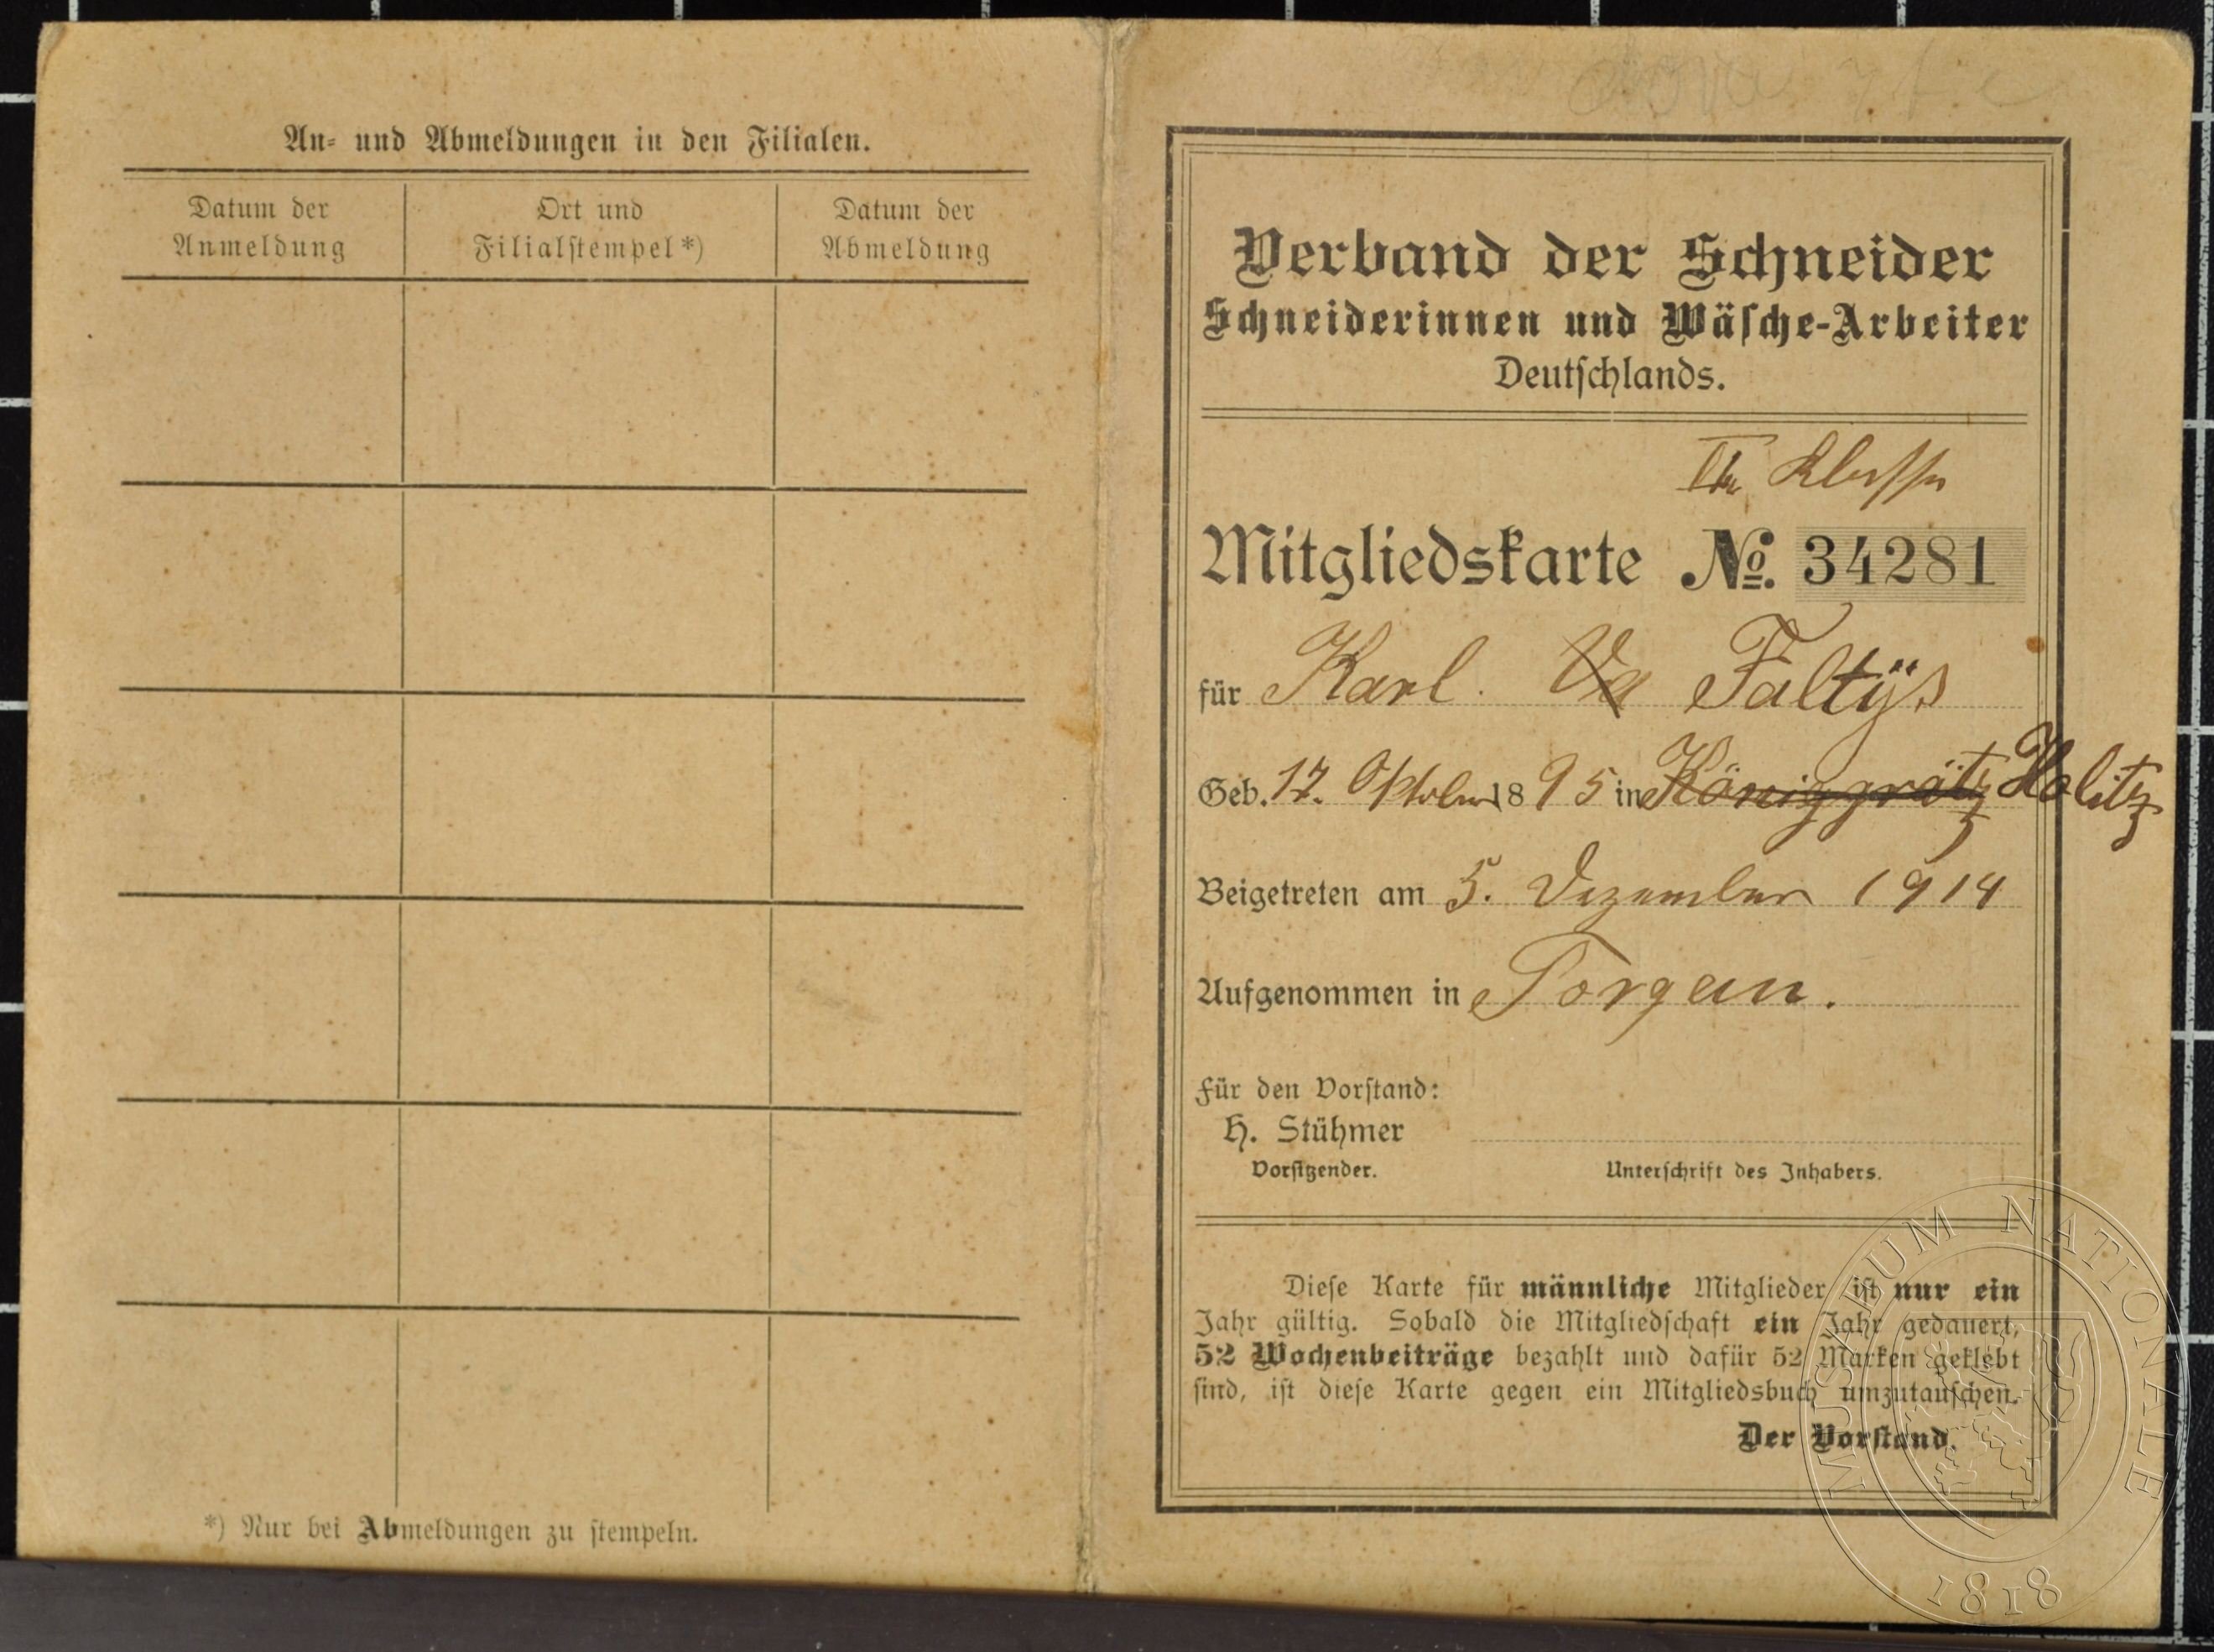 An- und Abmeldungen in den Filialen.
Datum der Anmeldung
Ort und Filialstempel *)
Datum der Abmeldung
*) Nur bei Abmeldungen zu stempeln.
Verband der Schneider
Schneiderinnen und Wäsche-Arbeiter
Deutschlands.
Klasse
Mitgliedskarte No. 34281
für Karl. Va Faltÿs
Geb. 17. Oktober 1895 in Königgrätz Holitz
Beigetreten am 5. Dezember 1914
Aufgenommen in Torgau.
Für den Vorstand:
H. Stühmer
Vorsitzender. Unterschrift des Inhabers.
Diese Karte für männliche Mitglieder ist nur ein
Jahr gültig. Sobald die Mitgliedschaft ein Jahr gedauert,
52 Wochenbeiträge bezahlt und dafür 52 Marken geklebt
sind, ist diese Karte gegen ein Mitgliedsbuch umzutauschen.
Der Vorstand.
MUSAEUM NATIONALE
1818